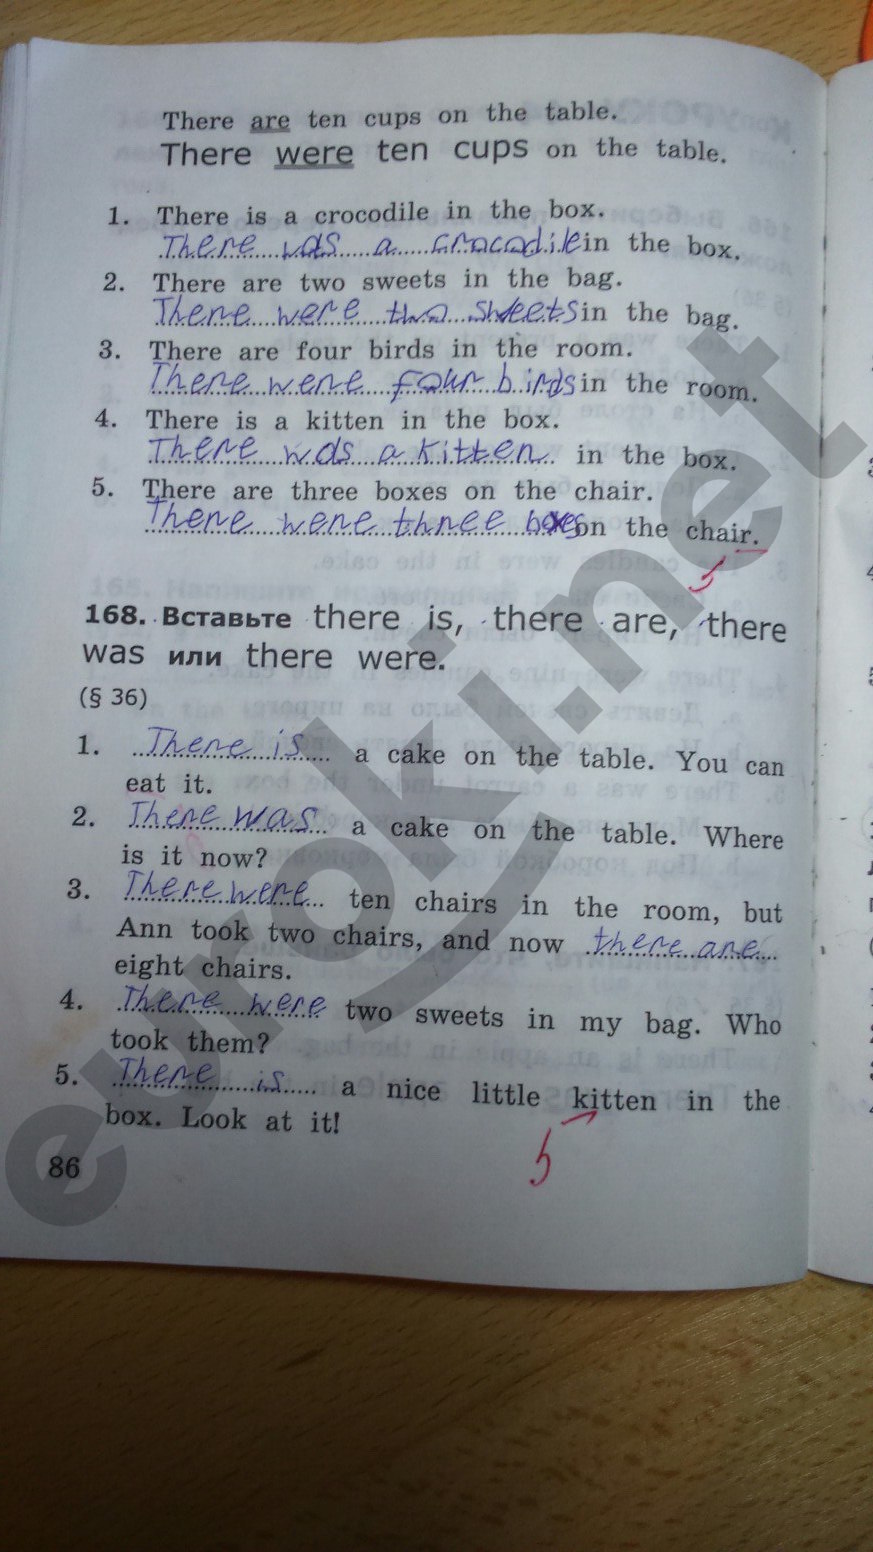 There are ten cups on the table.
There were ten cups on the table.
1. There is a crocodile in the box.
There was a crocodile in the box.
2. There are two sweets in the bag.
There were two sweets in the bag.
3. There are four birds in the room.
There were four birds in the room.
4. There is a kitten in the box.
There was a kitten in the box.
5. There are three boxes on the chair.
There were three boxes on the chair.
5
168. Вставьте there is, there are, there
was или there were.
(§ 36)
1. There is a cake on the table. You can
eat it.
2. There was a cake on the table. Where
is it now?
3. There were ten chairs in the room, but
Ann took two chairs, and now there are
eight chairs.
4. There were two sweets in my bag. Who
took them?
5. There is a nice little kitten in the
box. Look at it!
5
86
euroki.net